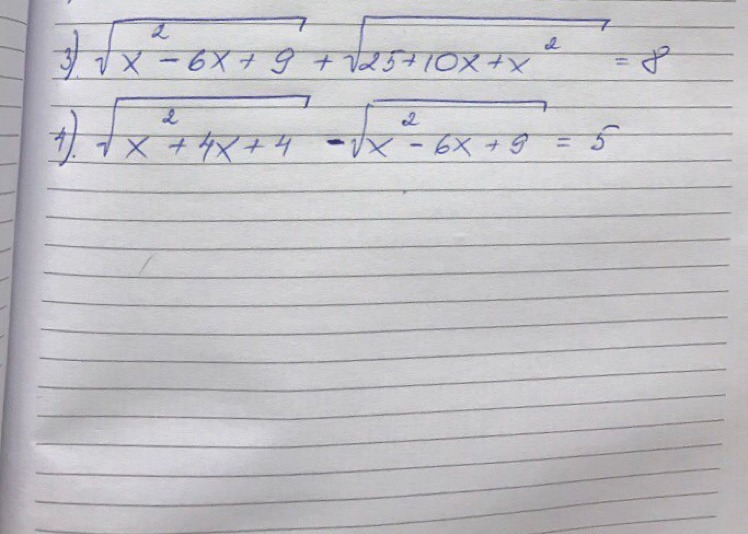 3). √x² - 6x + 9 + √25 + 10x + x² = 8
4). √x² + 4x + 4 - √x² - 6x + 9 = 5